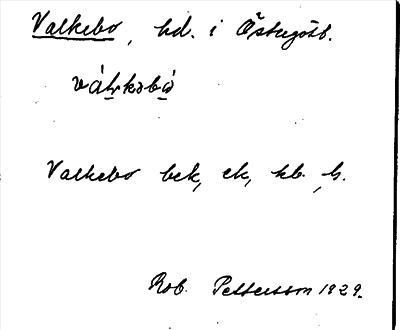 Valkebo, hd. i Östergötl.
válkəbò
Valkebo bek, ek, kb. h.
Rob. Pettersson 1929.